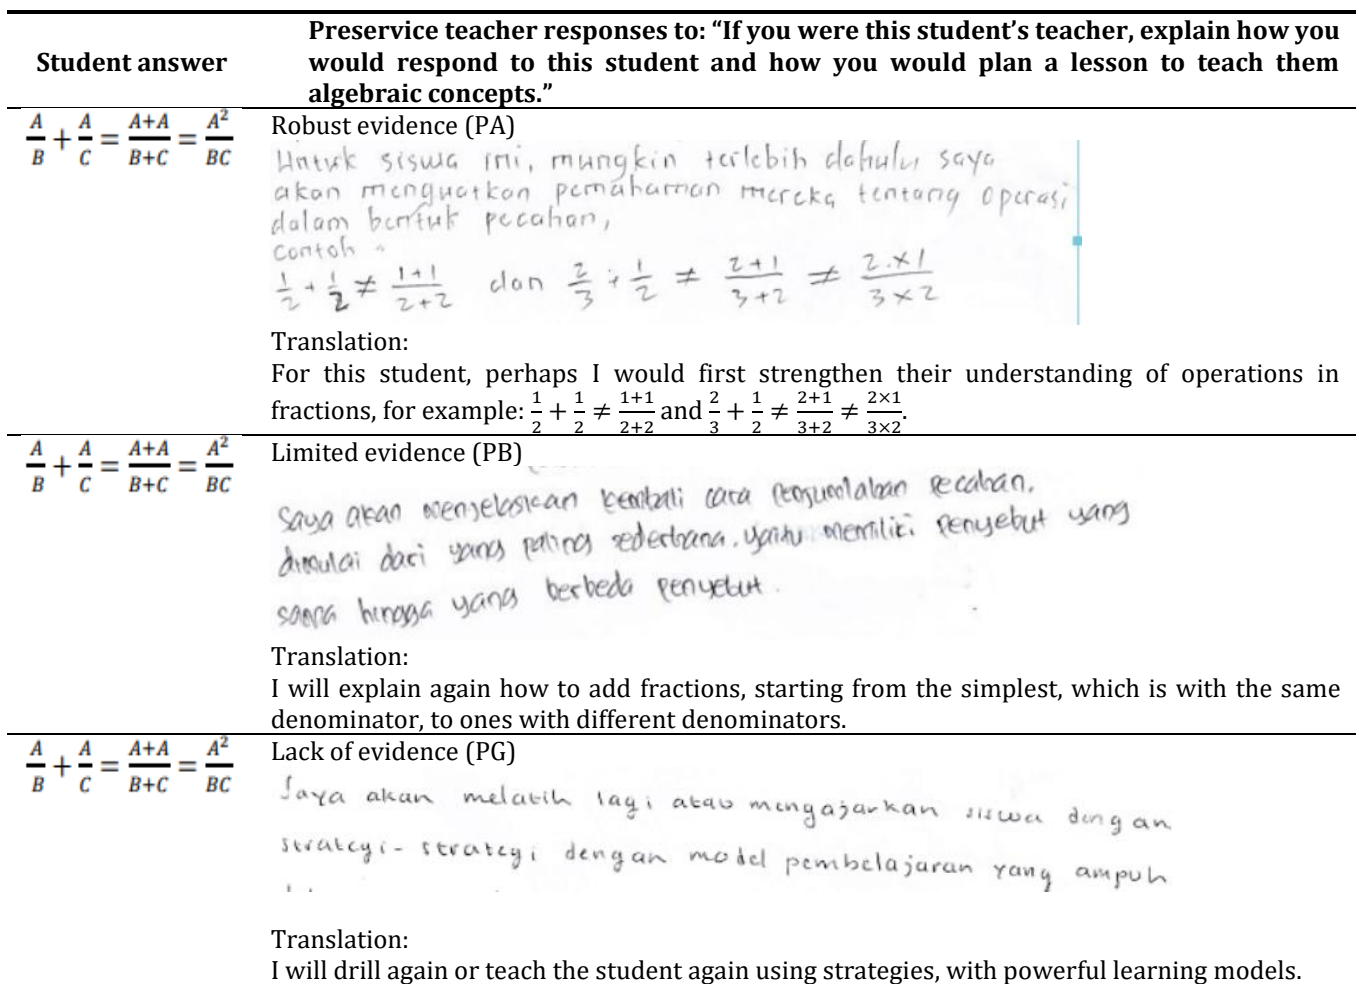 Student answer
Preservice teacher responses to: “If you were this student’s teacher, explain how you
would respond to this student and how you would plan a lesson to teach them
algebraic concepts.”
A/B + A/C = A+A/B+C = A²/BC
Robust evidence (PA)
Untuk siswa ini, mungkin terlebih dahulu saya
akan menguatkan pemahaman mereka tentang operasi
dalam bentuk pecahan,
contoh :
1/2 + 1/2 ≠ 1+1/2+2 dan 2/3 + 1/2 ≠ 2+1/3+2 ≠ 2×1/3×2
Translation:
For this student, perhaps I would first strengthen their understanding of operations in
fractions, for example: 1/2 + 1/2 ≠ 1+1/2+2 and 2/3 + 1/2 ≠ 2+1/3+2 ≠ 2×1/3×2.
A/B + A/C = A+A/B+C = A²/BC
Limited evidence (PB)
Saya akan menjelaskan kembali cara penjumlahan pecahan,
dimulai dari yang paling sederhana, yaitu memiliki penyebut yang
sama hingga yang berbeda penyebut.
Translation:
I will explain again how to add fractions, starting from the simplest, which is with the same
denominator, to ones with different denominators.
A/B + A/C = A+A/B+C = A²/BC
Lack of evidence (PG)
Saya akan melatih lagi atau mengajarkan siswa dengan
strategi-strategi dengan model pembelajaran yang ampuh
Translation:
I will drill again or teach the student again using strategies, with powerful learning models.